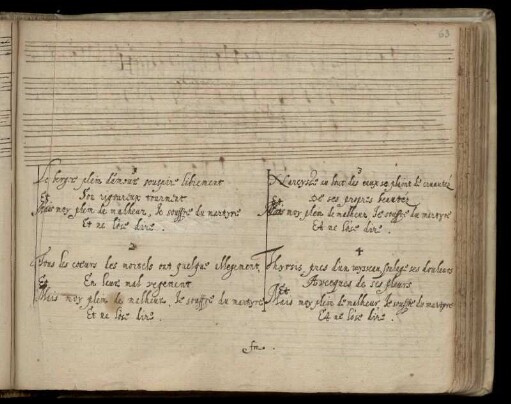 63
Le berger plein d'amour soupire librement
Son rigoureux tourment
Et
Mais moy plein de malheur, Je souffre du martyre
Et ne l'ose dire .
2
Tous les coeurs des mortels ont quelque allegement,
En leur mal vegement
Et
Mais moy plein de malheur, Je souffre du martyre
Et ne l'ose dire .
3
Narcysse au bout des eaux se plaint de cruautez
De ses propres beautez
Mais moy plein de malheur, Je souffre du martyre
Et ne l'ose dire .
4
Thyrsis, pres d'un ruysseau, soulage ses douleurs
Avecques de ses pleurs
Et
Mais moy plein de malheur, Je souffre du martyre
Et ne l'ose dire .
fin .